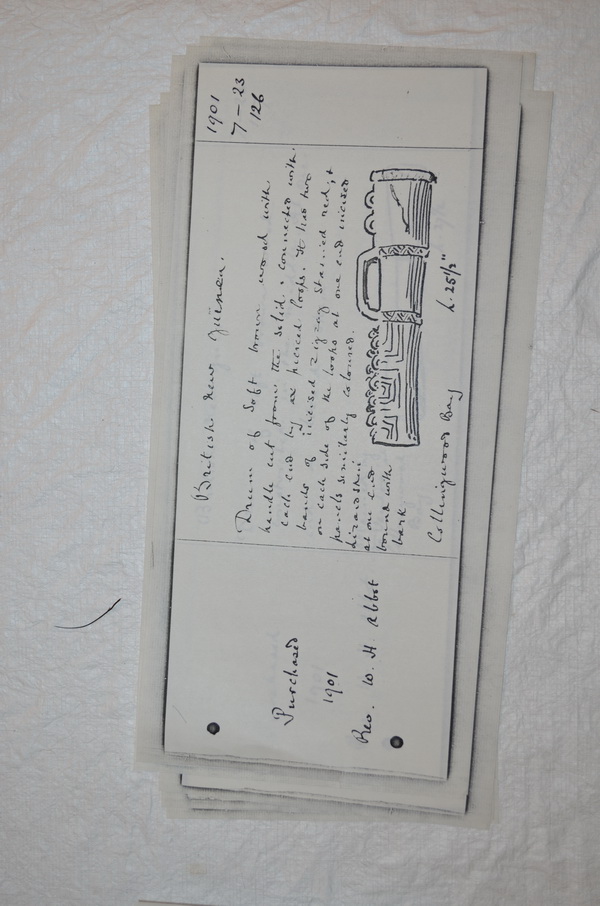 1901
7 – 23
/126
British New Guinea.
Drum of soft brown wood with
handle cut from the solid & connected with
each end by pierced loops. It has two
bands of incised zigzag stained red, &
on each side of the loops at one end incised
panels similarly coloured.
Lizard skin
at one end
bound with
bark
L. 25½"
Collingwood Bay
Purchased
1901
Rev. W. H. Abbot